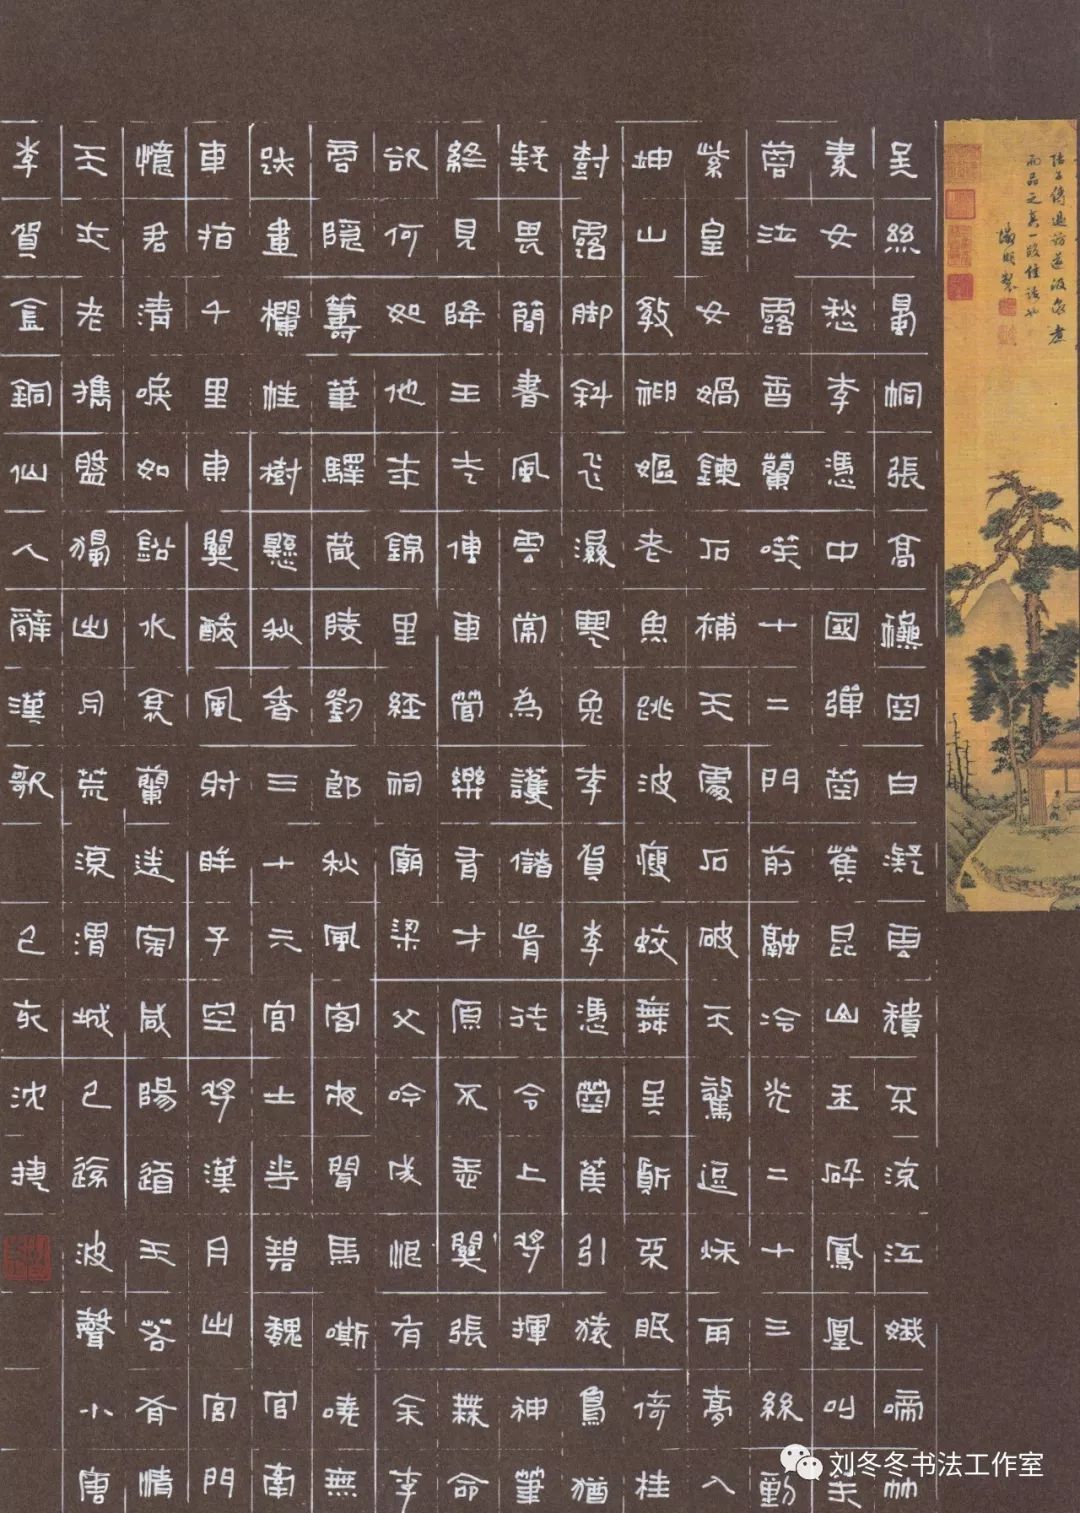 而品之真一段佳話也
徵明製
吴絲蜀桐張高穐空白凝雲穨不流江娥啼竹
素女愁李憑中國彈箜蕉昆山玉碎鳳凰叫芙
蓉泣露香蘭笑十二門前融冷光二十三絲動
紫皇女媧鍊石補天處石破天驚逗秋雨夢入
坤山教神嫗老魚跳波瘦蛟舞吴質不眠倚桂
樹露脚斜飛濕寒兔李賀李憑箜蕉引猿鳥猶
疑畏簡書風雲常為護儲胥徒令上將揮神筆
終見降王走傳車管樂有才原不忝關張無命
欲何如他年錦里經祠廟梁父吟成恨有余李
商隱籌筆驛茂陵劉郎秋風客夜聞馬嘶曉無
跡畫欄桂樹懸秋香三十六宮土花碧魏官牽
車指千里東關酸風射眸子空將漢月出宮門
憶君清淚如鉛水衰蘭送客咸陽道天若有情
天亦老攜盤獨出月荒涼渭城已遠波聲小唐
李賀金銅仙人辭漢歌 己亥沈捷
刘冬冬书法工作室